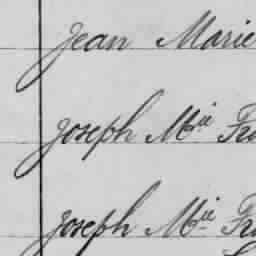 Jean Marie
Joseph Mie Fr
Joseph Mie Fr